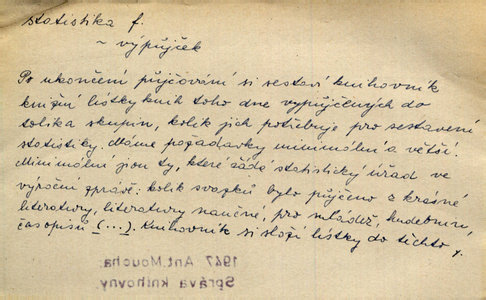 statistika f.
~ výpůjček
Po ukončení půjčování si sestaví knihovník
knižní lístky knih toho dne vypůjčených do
tolika skupin, kolik jich potřebuje pro sestavení
statistiky. Máme požadavky minimální a větší.
Minimální jsou ty, které žádá statistický úřad ve
výroční zprávě: kolik svazků bylo půjčeno z krásné
literatury, literatury naučné, pro mládež, hudebnin,
časopisů (...). Knihovník si složí lístky do těchto
1947 Ant.Moucha:
Správa knihovny.